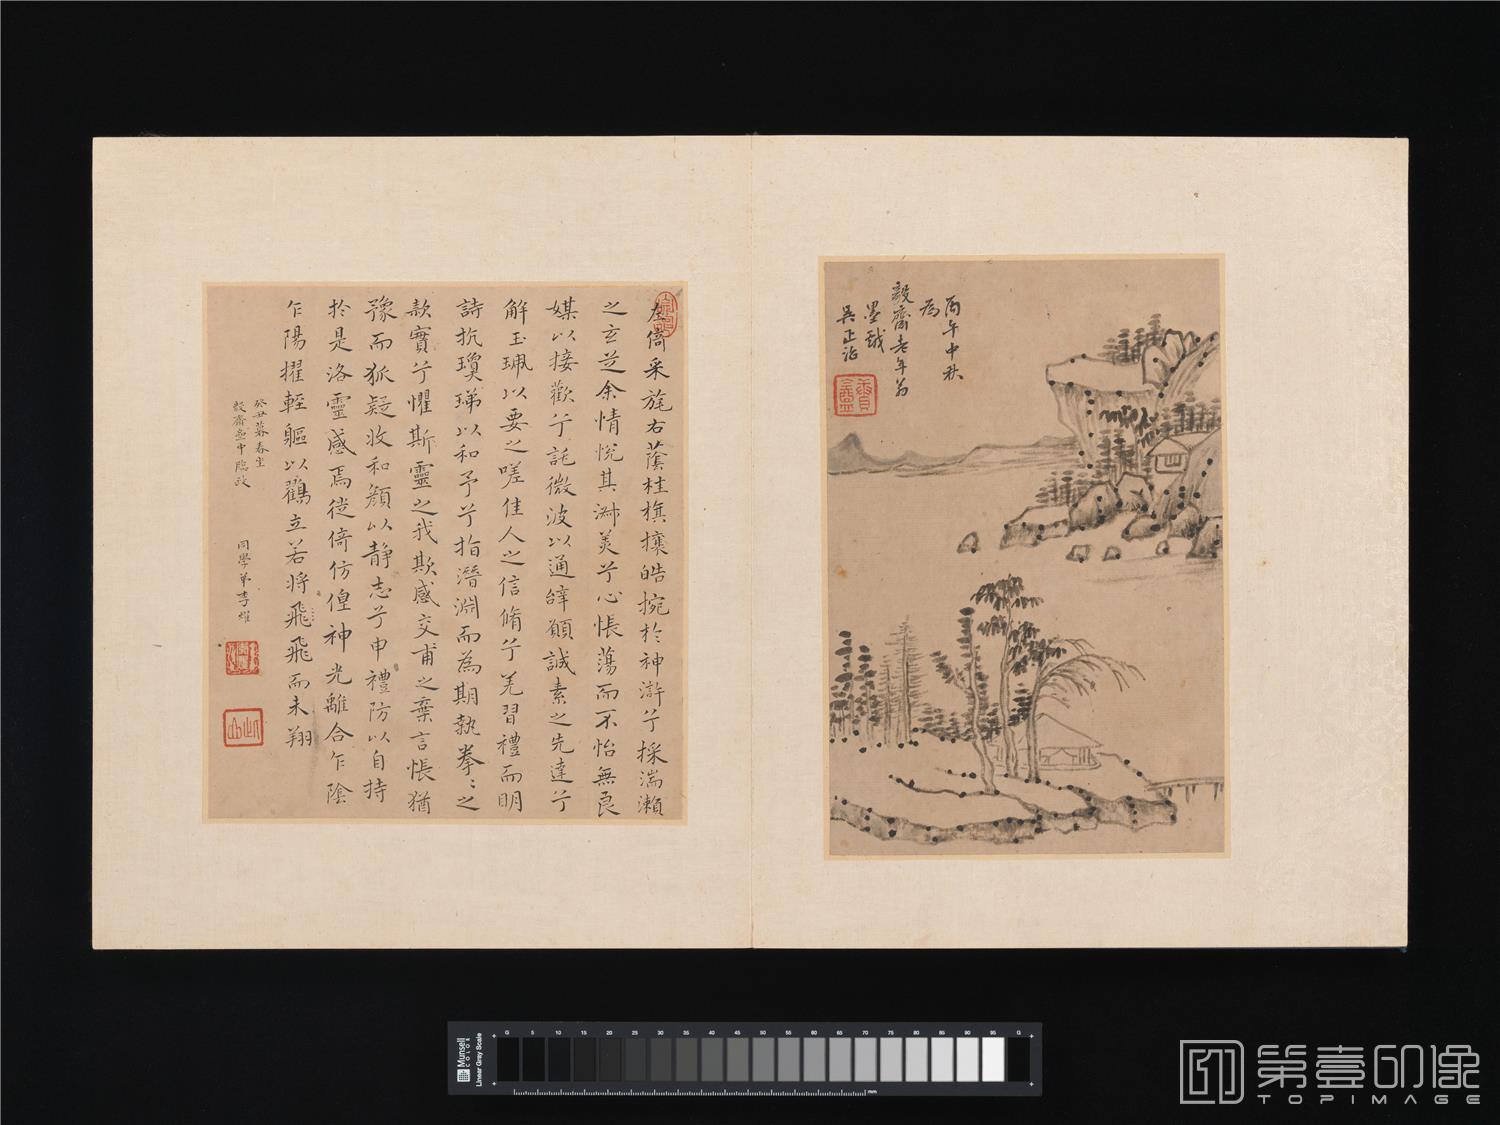 丙午中秋
為
毅齋老年翁
墨戲
吳正治
左倚采旄右蔭桂旗攘皓捥於神滸兮採湍瀨
之玄芝余情悅其淑美兮心悵蕩而不怡無良
媒以接歡兮託微波以通辭願誠素之先達兮
解玉珮以要之嗟佳人之信脩兮羌習禮而明
詩抗瓊珶以和予兮指潛淵而為期執拳〻之
款實兮懼斯靈之我欺感交甫之棄言悵猶
豫而狐疑收和顏以静志兮申禮防以自持
於是洛靈感焉徙倚仿偟神光離合乍陰
乍陽擢輕軀以鸖立若將飛飛而未翔
癸丑暮春坐
毅齋壺中臨政
同學弟李
Munsell COLOR
Linear Gray Scale
G 5 10 15 20 25 30 35 40 45 50 55 60 65 70 75 80 85 90 95 G
mm
第壹印像
TOPIMAGE